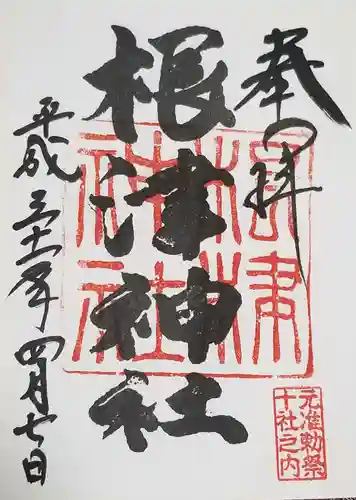 奉拝
根津神社
平成三十一年四月七日
根津神社
元准勅祭
十社之内